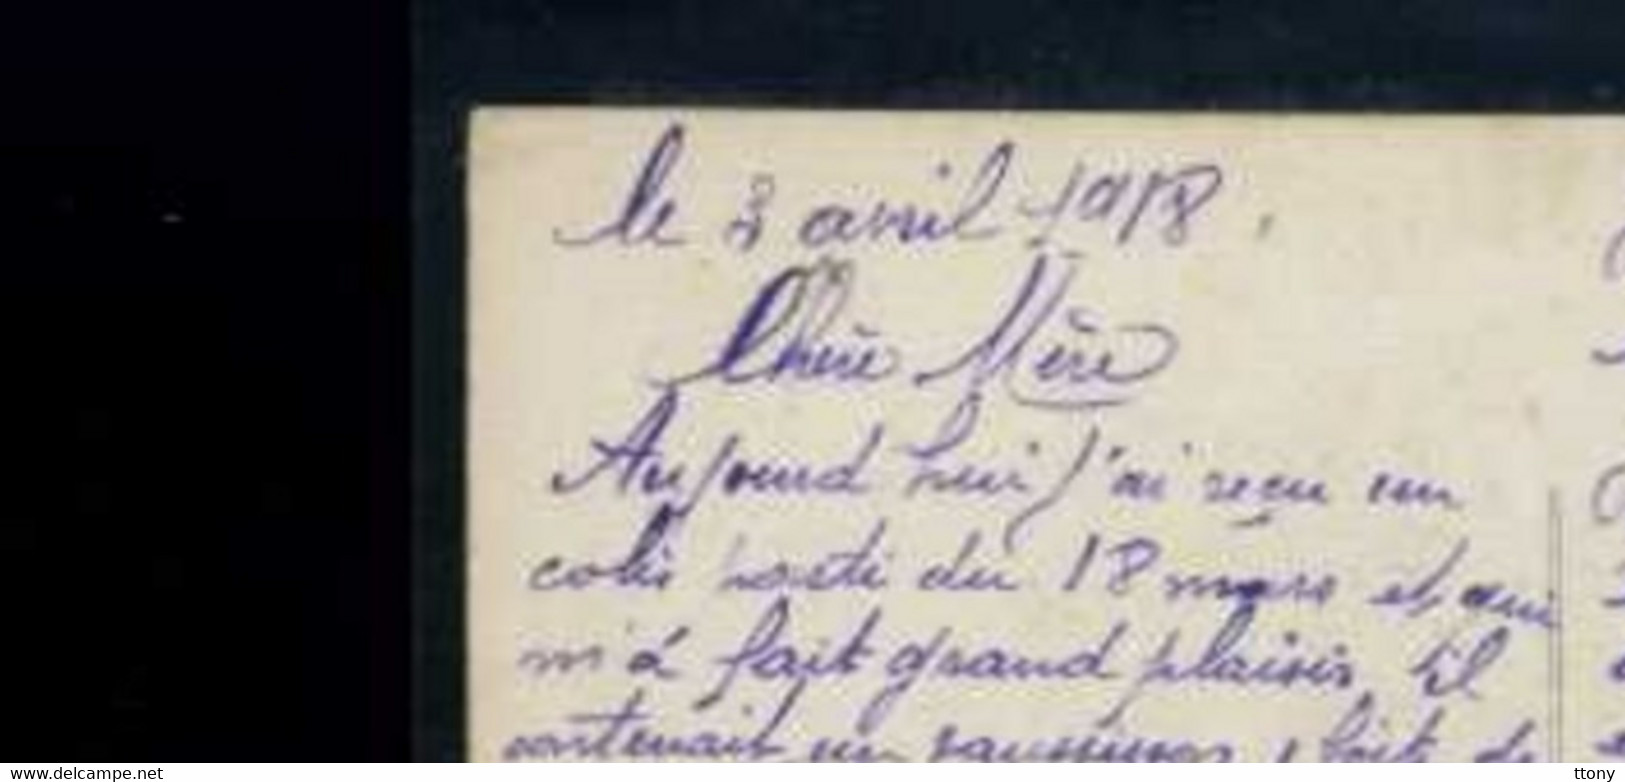 le 3 avril 1918.
Chère Mère
Aujourd hui j'ai reçu un
colis posté du 18 mars et qui
m'a fait grand plaisir, il
contenait un saucisson, boit de
https://www.delcampe.net
ttony